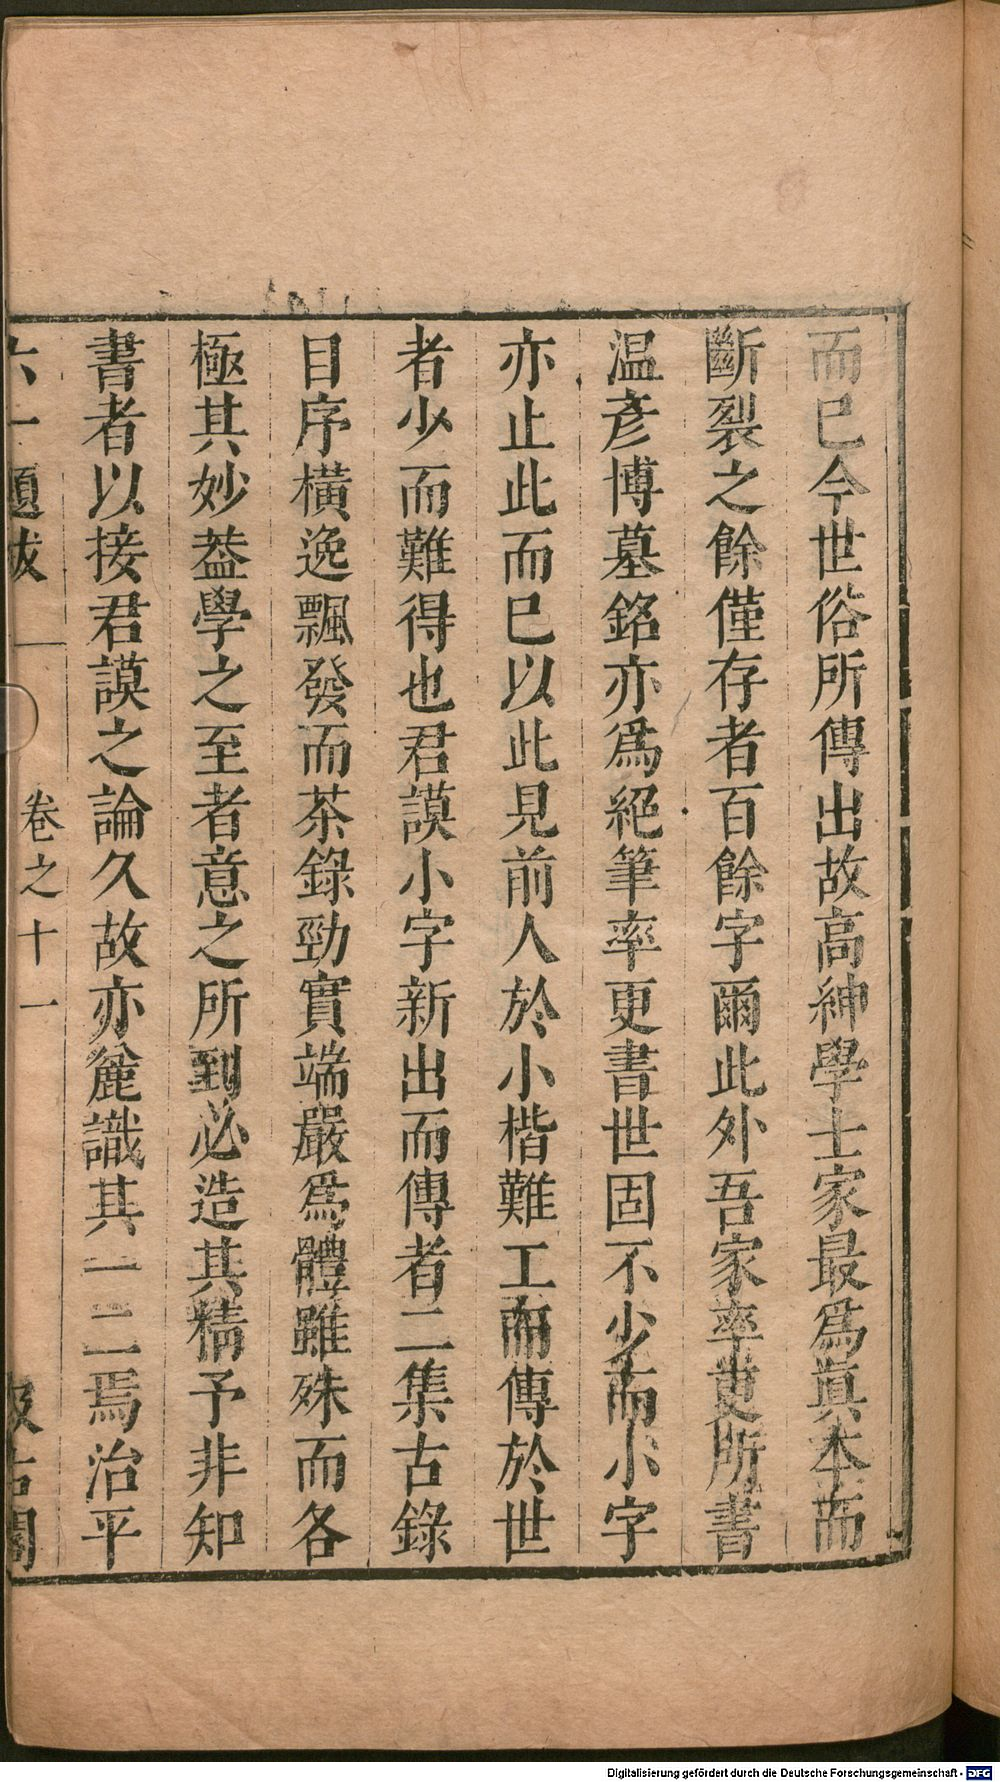 而已今世俗所傳出故高紳學士家最爲眞本而
斷裂之餘僅存者百餘字爾此外吾家率更所書
温彦博墓銘亦爲絕筆率更書世固不少而小字
亦止此而已以此見前人於小楷難工而傳於世
者少而難得也君謨小字新出而傳者二集古錄
目序橫逸飄發而茶錄勁實端嚴爲體雖殊而各
極其妙葢學之至者意之所到必造其精予非知
書者以接君謨之論久故亦麄識其一二焉治平
六一題跋 卷之十一 汲古閣
Digitalisierung gefördert durch die Deutsche Forschungsgemeinschaft - DFG